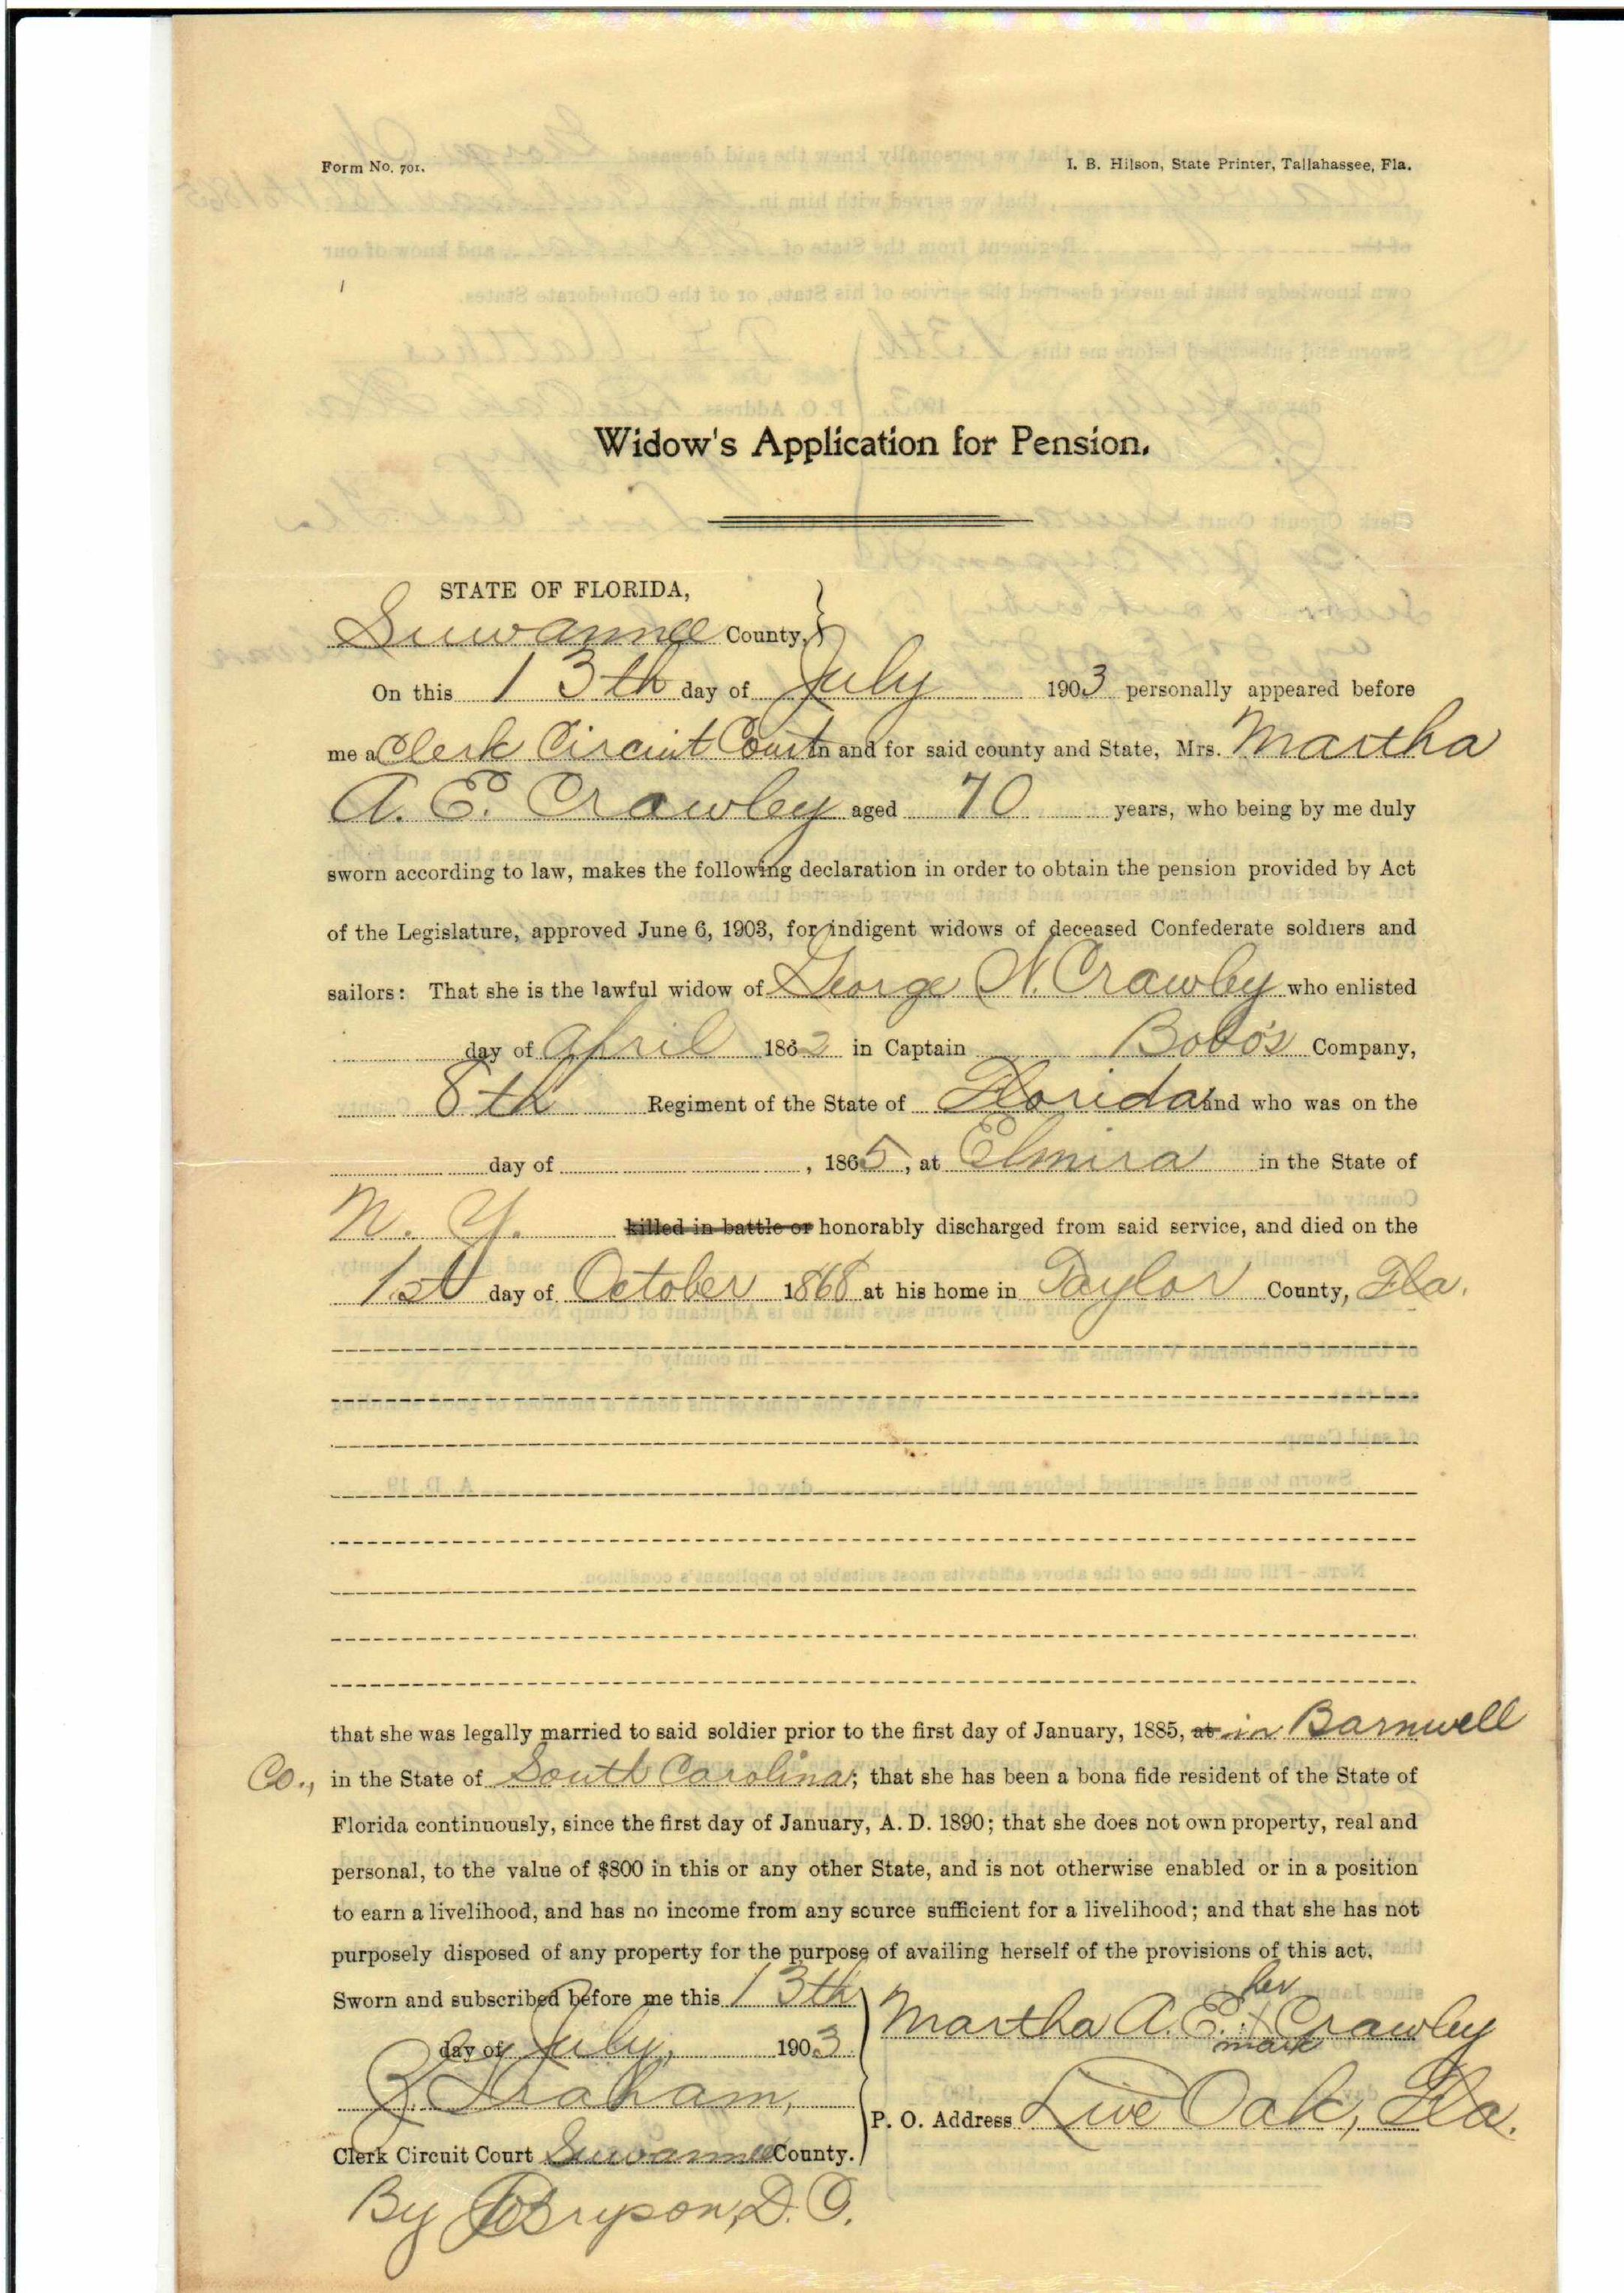 Form No. 701. I. B. Hilson, State Printer, Tallahassee, Fla.
Widow's Application for Pension.
STATE OF FLORIDA,
Suwannee County,
On this 13th day of July 1903 personally appeared before
me a Clerk Circuit Court in and for said county and State, Mrs. Martha
A. E. Crawley aged 70 years, who being by me duly
sworn according to law, makes the following declaration in order to obtain the pension provided by Act
of the Legislature, approved June 6, 1903, for indigent widows of deceased Confederate soldiers and
sailors: That she is the lawful widow of George N. Crawley who enlisted
day of April 1862 in Captain Bobo's Company,
8th Regiment of the State of Florida and who was on the
day of , 1865, at Elmira in the State of
N. Y. killed in battle or honorably discharged from said service, and died on the
1st day of October 1868 at his home in Taylor County, Fla.
that she was legally married to said soldier prior to the first day of January, 1885, at in Barnwell
Co., in the State of South Carolina; that she has been a bona fide resident of the State of
Florida continuously, since the first day of January, A. D. 1890; that she does not own property, real and
personal, to the value of $800 in this or any other State, and is not otherwise enabled or in a position
to earn a livelihood, and has no income from any source sufficient for a livelihood; and that she has not
purposely disposed of any property for the purpose of availing herself of the provisions of this act.
Sworn and subscribed before me this 13th
day of July, 1903
Graham,
Clerk Circuit Court Suwannee County.
By Bryson, D. C.
her
Martha A. E. X Crawley
mark
P. O. Address Live Oak, Fla.